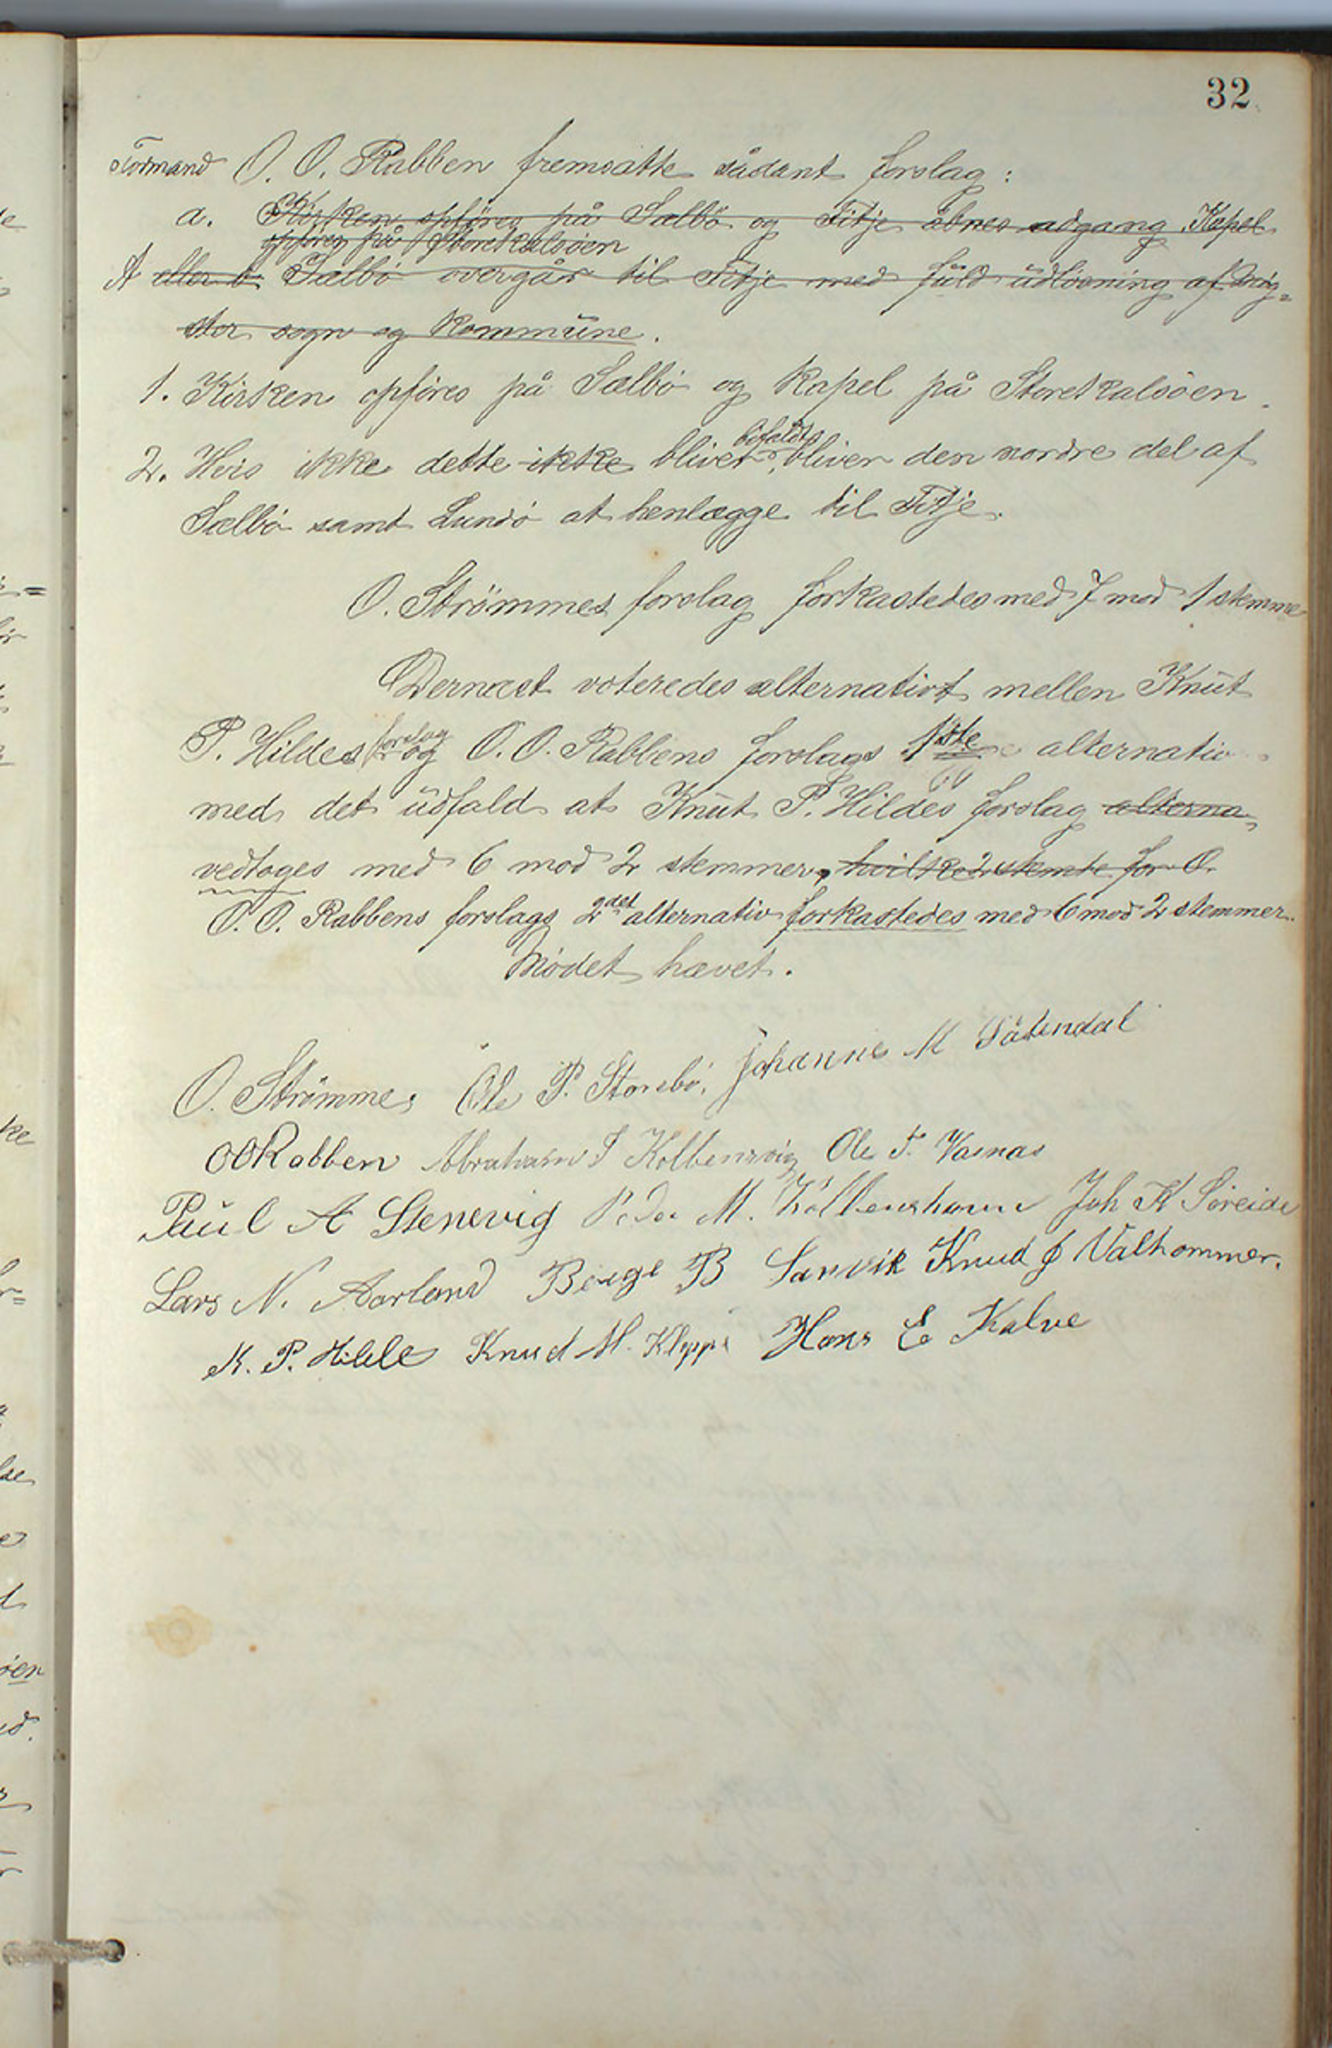 32
Formand O. O. Rabben fremsatte sådant forslag:
a. Kirken opføres på Sælbö og Fitje åbnes adgang. Kapel
opføres på Storekalsöen
A eller b. Sælbö overgår til Fitje med füld üdlösning af Møg=
ster sogn og kommüne.
1. Kirken opføres på Sælbö og Kapel på Storekalsöen.
2. Hvis ikke dette ikke bliver befaldt, bliver den nordre del af
Sælbö samt Lundö at henlægge til Fitje.
O. Strömmes forslag forkastedes med 7 mod 1 stemme
Dernæst voteredes alternativt mellen Knüt
P. Hildes forslag og O. O. Rabbens forslags 1ste alternativ
med det üdfald at Knüt P. Hildes forslag alterna
vedtoges med 6 mod 2 stemmer, hvilke 2 stemte for O.
O. O. Rabbens forslags 2det alternativ forkastedes med 6 mod 2 stemmer.
Mödet hævet.
O. Strömmes Ole P. Storebö. Johannes M
OORabben Abraham J Kolbensvig Ole T.
Paul A Stenevig Peder M. Joh K Søreide
Lars N. Aarland Børge B Sanvik Knud J Valhammer.
K. P. Hilde Knud M. Kleppe Hans E Kalve